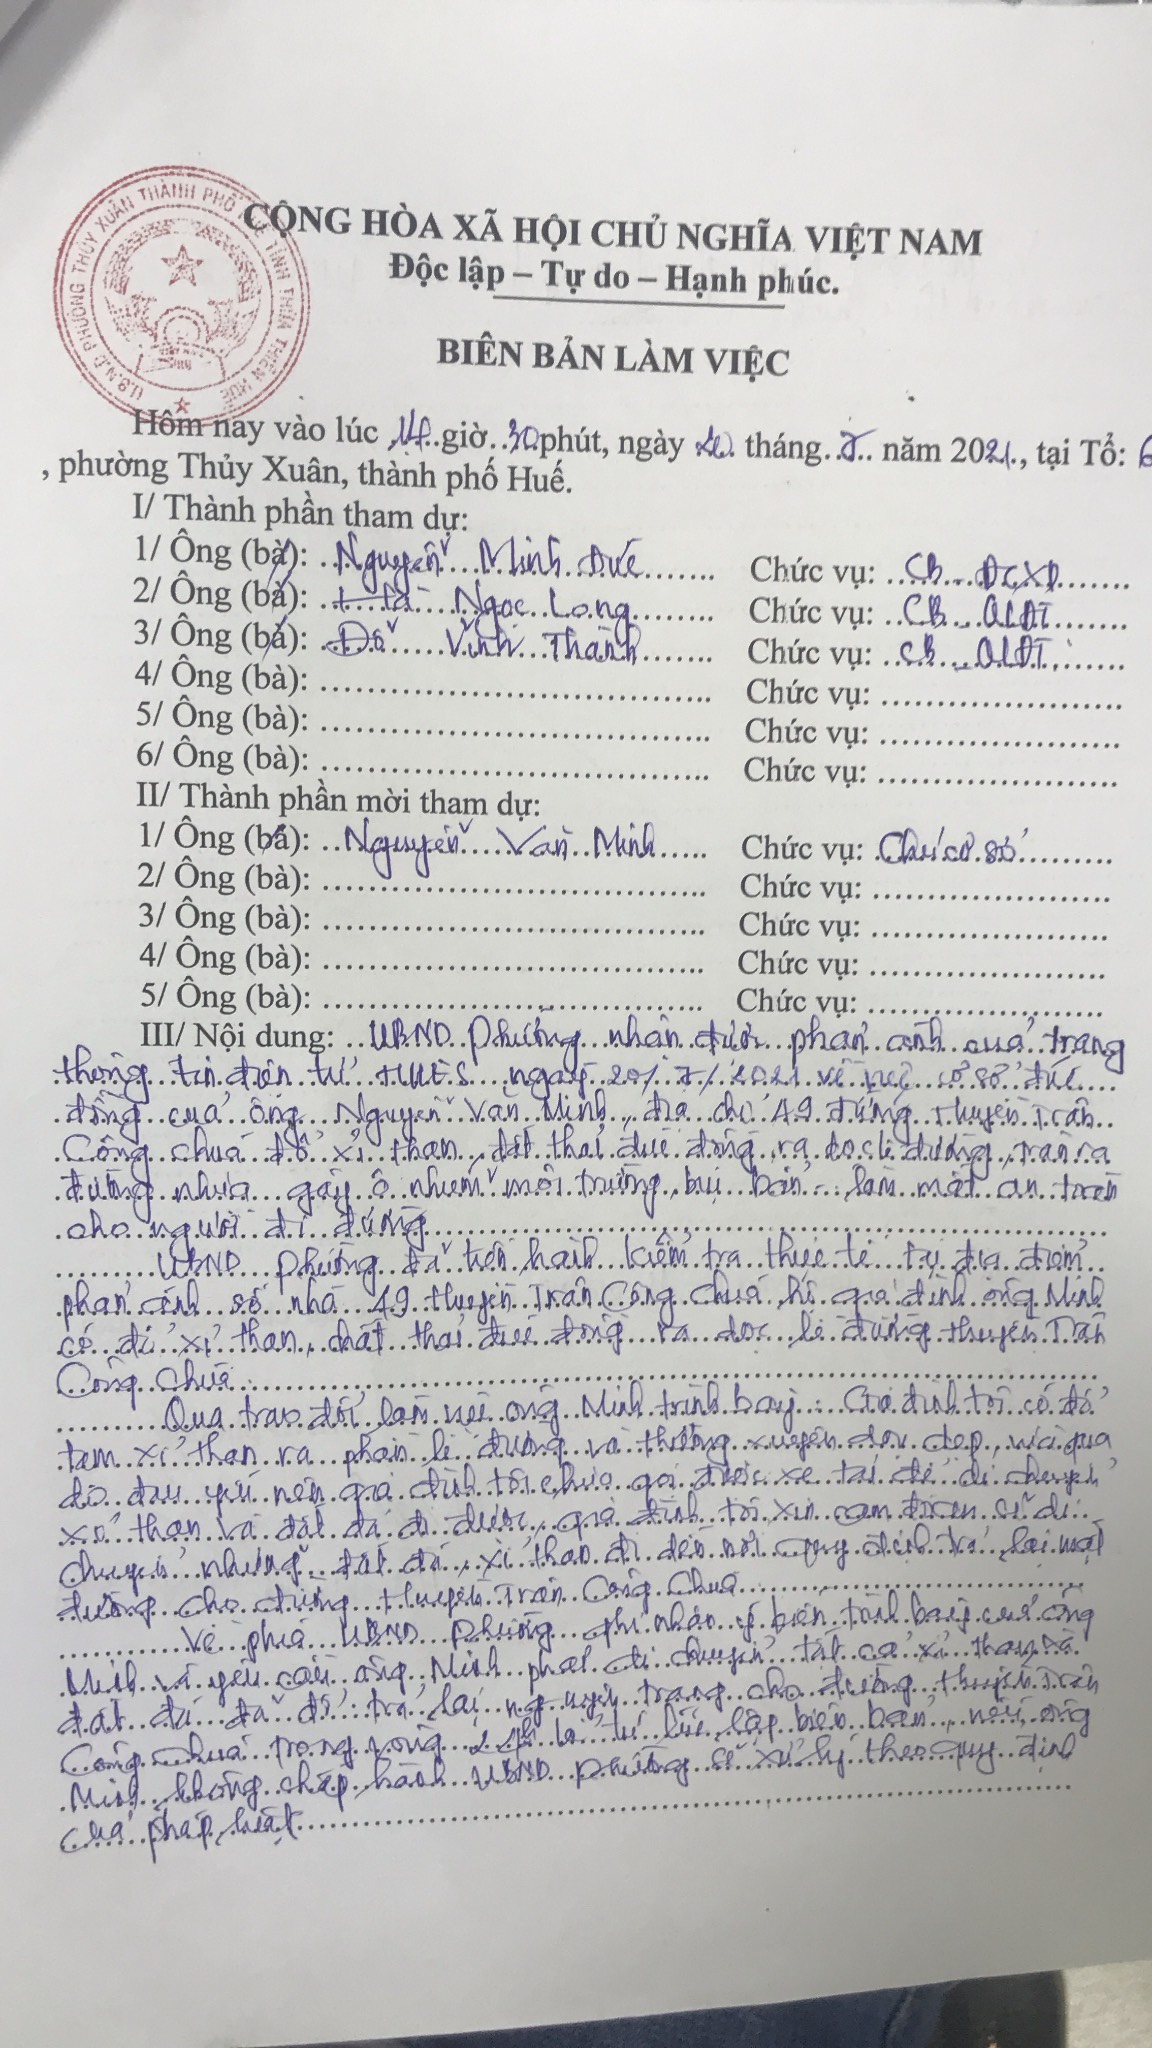 U.B.N.D PHƯỜNG THỦY XUÂN THÀNH PHỐ HUẾ TỈNH THỪA THIÊN HUẾ
CỘNG HÒA XÃ HỘI CHỦ NGHĨA VIỆT NAM
Độc lập – Tự do – Hạnh phúc.
BIÊN BẢN LÀM VIỆC
Hôm nay vào lúc 14 giờ 30 phút, ngày 20 tháng 7 năm 2021, tại Tổ: 6
, phường Thủy Xuân, thành phố Huế.
I/ Thành phần tham dự:
1/ Ông (bà): Nguyễn Minh Đức Chức vụ: CB ĐCXD
2/ Ông (bà): Hà Ngọc Long Chức vụ: CB QLĐT
3/ Ông (bà): Đỗ Vĩnh Thành Chức vụ: CB QLĐT
4/ Ông (bà): Chức vụ:
5/ Ông (bà): Chức vụ:
6/ Ông (bà): Chức vụ:
II/ Thành phần mời tham dự:
1/ Ông (bà): Nguyễn Văn Minh Chức vụ: Chủ cơ sở
2/ Ông (bà): Chức vụ:
3/ Ông (bà): Chức vụ:
4/ Ông (bà): Chức vụ:
5/ Ông (bà): Chức vụ:
III/ Nội dung: UBND Phường nhận được phản ánh qua trang
thông tin điện tử HUES ngày 20/7/2021 về việc cơ sở đúc
đồng của ông Nguyễn Văn Minh, địa chỉ 49 đường Huyền Trân
Công chúa đổ xỉ than, đất thải đúc đồng ra dọc lề đường, tràn ra
đường nhựa gây ô nhiễm môi trường, bụi bẩn, làm mất an toàn
cho người đi đường
UBND phường đã tiến hành kiểm tra thực tế tại địa điểm
phản ánh số nhà 49 Huyền Trân Công chúa, hộ gia đình ông Minh
có đổ xỉ than, chất thải đúc đồng ra dọc lề đường Huyền Trân
Công Chúa
Qua trao đổi, làm việc ông Minh trình bày: Gia đình tôi có đổ
tạm xỉ than ra phần lề đường và thường xuyên dọn dẹp, vừa qua
do đau yếu nên gia đình tôi chưa gọi được xe tải để di chuyển
xỉ than và đất đá đi được, gia đình tôi xin cam đoan sẽ di
chuyển những đất đá, xỉ than đi đến nơi quy định trả lại mặt
đường cho đường Huyền Trân Công Chúa
Về phía UBND Phường ghi nhận ý kiến trình bày của ông
Minh và yêu cầu ông Minh phải di chuyển tất cả xỉ than và
đất đá đã đổ trả lại nguyên trạng cho đường Huyền Trân
Công chúa trong vòng từ lúc lập biên bản, nếu ông
Minh không chấp hành UBND phường sẽ xử lý theo quy định
của pháp luật